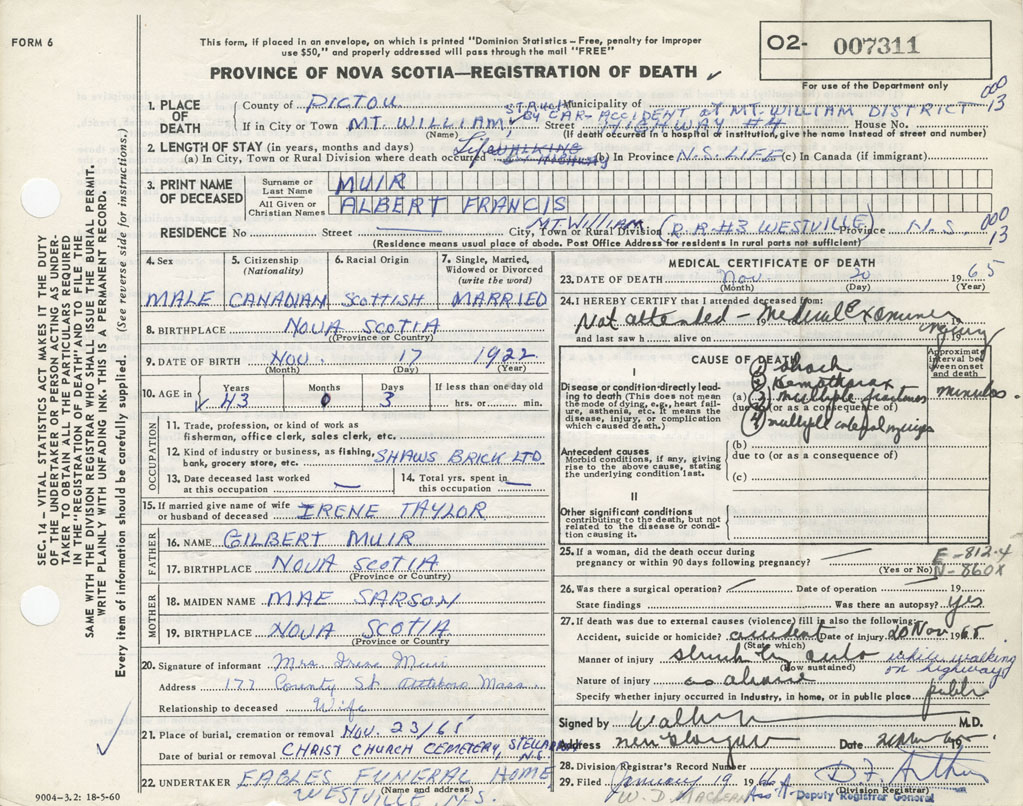 FORM 6
This form, if placed in an envelope, on which is printed "Dominion Statistics - Free, penalty for improper
use $50," and properly addressed will pass through the mail "FREE"
PROVINCE OF NOVA SCOTIA—REGISTRATION OF DEATH ✓
O2- 007311
For use of the Department only
000
13
SEC. 14 – VITAL STATISTICS ACT MAKES IT THE DUTY
OF THE UNDERTAKER OR PERSON ACTING AS UNDER-
TAKER TO OBTAIN ALL THE PARTICULARS REQUIRED
IN THE "REGISTRATION OF DEATH" AND TO FILE THE
SAME WITH THE DIVISION REGISTRAR WHO SHALL ISSUE THE BURIAL PERMIT.
WRITE PLAINLY WITH UNFADING INK. THIS IS A PERMANENT RECORD.
Every item of information should be carefully supplied. (See reverse side for instructions.)
1. PLACE OF DEATH
County of PICTOU Municipality of
STRUCK BY CAR-ACCIDENT at MT. WILLIAM DISTRICT
If in City or Town MT. WILLIAM Street HIGHWAY #4 House No.
(Name) (If death occurred in hospital or institution, give the name instead of street and number)
2. LENGTH OF STAY (in years, months and days)
(a) In City, Town or Rural Division where death occurred Life WALKING (b) In Province N.S. LIFE (c) In Canada (if immigrant)
3. PRINT NAME OF DECEASED
Surname or Last Name MUIR
All Given or Christian Names ALBERT FRANCIS
RESIDENCE No Street City, Town or Rural Division MT. WILLIAM (R.R.#3 WESTVILLE) Province N.S.
000
13
(Residence means usual place of abode. Post Office Address for residents in rural parts not sufficient)
4. Sex 5. Citizenship (Nationality) 6. Racial Origin 7. Single, Married, Widowed or Divorced (write the word)
MALE CANADIAN SCOTTISH MARRIED
8. BIRTHPLACE NOVA SCOTIA
(Province or Country)
9. DATE OF BIRTH NOV. 17 1922
(Month) (Day) (Year)
10. AGE in Years Months Days If less than one day old
✓ 43 0 3 hrs. or min.
OCCUPATION
11. Trade, profession, or kind of work as
fisherman, office clerk, sales clerk, etc.
12. Kind of industry or business, as fishing,
bank, grocery store, etc. SHAWS BRICK LTD
13. Date deceased last worked
at this occupation —
14. Total yrs. spent in
this occupation —
15. If married give name of wife
or husband of deceased IRENE TAYLOR
FATHER
16. NAME GILBERT MUIR
17. BIRTHPLACE NOVA SCOTIA
(Province or Country)
MOTHER
18. MAIDEN NAME MAE SARSON
19. BIRTHPLACE NOVA SCOTIA
(Province or Country)
20. Signature of informant Mrs. Irene Muir
Address 177 County St. Attleboro Mass.
Relationship to deceased Wife
21. Place of burial, cremation or removal NOV. 23/65
Date of burial or removal CHRIST CHURCH CEMETERY, STELLARTON, N.S.
22. UNDERTAKER EAGLES FUNERAL HOME
(Name and address)
WESTVILLE, N.S.
9004-3.2: 18-5-60
MEDICAL CERTIFICATE OF DEATH
23. DATE OF DEATH Nov. 20 1965
(Month) (Day) (Year)
24. I HEREBY CERTIFY that I attended deceased from:
Not attended – Medical Examiner 19 19
and last saw h alive on 19
Injury
CAUSE OF DEATH
Approximate interval between onset and death
I
Disease or condition directly lead-
ing to death (This does not mean
the mode of dying, e.g., heart fail-
ure, asthenia, etc. It means the
disease, injury, or complication
which caused death.)
(1) Shock
(2) Hemothorax
(a) (3) multiple fractures minutes
due to (or as a consequence of)
(4) multiple internal injuries
Antecedent causes
Morbid conditions, if any, giving
rise to the above cause, stating
the underlying condition last.
(b)
due to (or as a consequence of)
(c)
II
Other significant conditions
contributing to the death, but not
related to the disease or condi-
tion causing it.
25. If a woman, did the death occur during
pregnancy or within 90 days following pregnancy?
(Yes or No)
E-812.4
N-860X
26. Was there a surgical operation? Date of operation 19
State findings Was there an autopsy? Yes
27. If death was due to external causes (violence) fill in also the following:
Accident, suicide or homicide? accident Date of injury 20 Nov 1965
(State which)
Manner of injury struck by auto while walking on highway
(How sustained)
Nature of injury as above
Specify whether injury occurred in industry, in home, or in public place public
Signed by M.D.
Address New Glasgow Date
28. Division Registrar's Record Number
29. Filed January 19 1966 D. F. Arthur
(Division Registrar)
W. D. MacLean Ass't- Deputy Registrar General